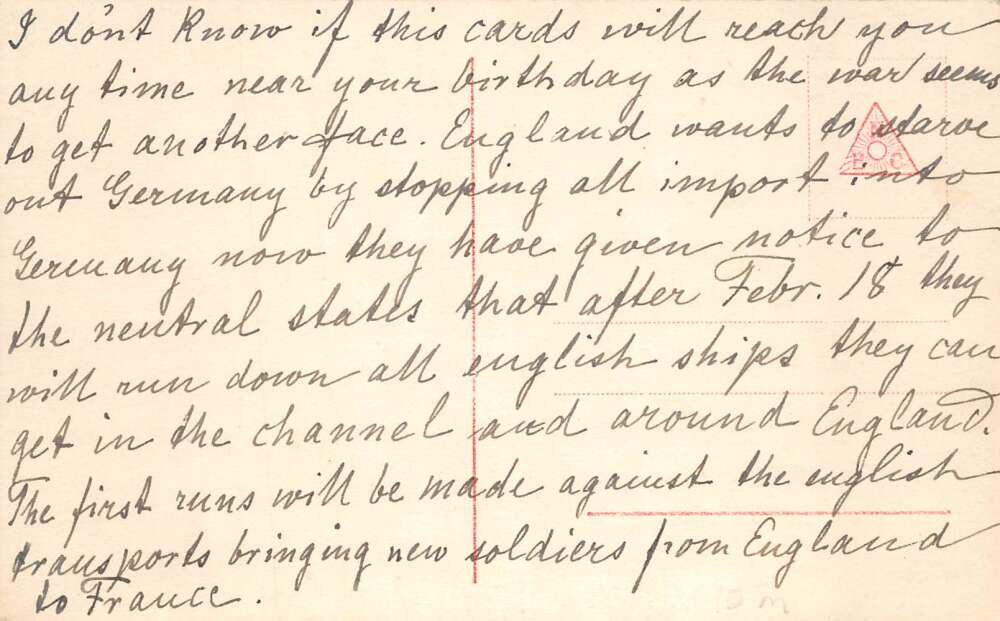 I don't know if this cards will reach you
any time near your birthday as the war seems
to get another face. England wants to starve
out Germany by stopping all import into
Germany now they have given notice to
the neutral states that after Febr. 18 they
will run down all english ships they can
get in the channel and around England.
The first runs will be made against the english
transports bringing new soldiers from England
to France.
N
B C